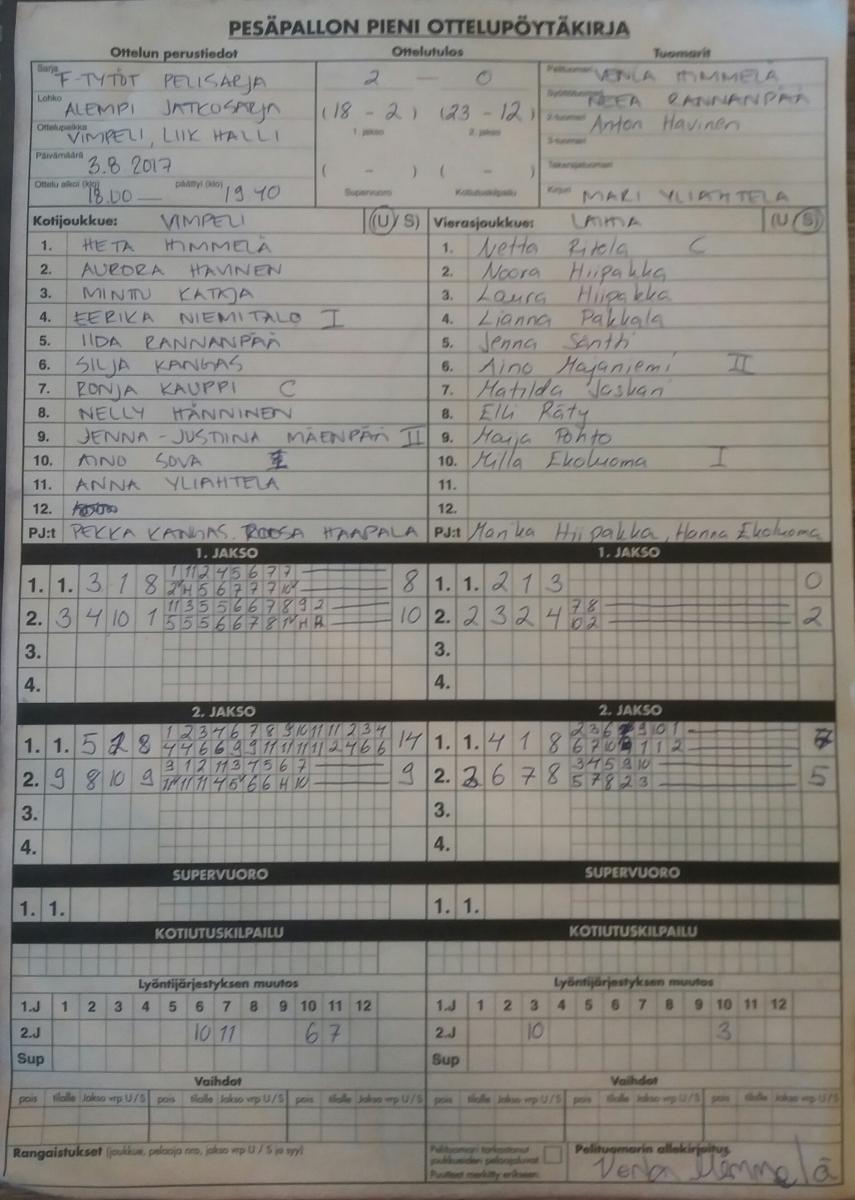 PESÄPALLON PIENI OTTELUPÖYTÄKIRJA
Ottelun perustiedot Ottelutulos Tuomarit
Sarja F-TYTÖT PELISARJA 2 — 0 Pelituomari VENLA HIMMELÄ
Lohko ALEMPI JATKOSARJA (18 - 2) (23 - 12) Syöttötuomari NEEA RANNANPÄÄ
Ottelupaikka VIMPELI, LIIK HALLI 1. jakso 2. jakso 2-tuomari Anton Havinen
3-tuomari
Päivämäärä 3.8 2017 ( - ) ( - ) Takarajatuomari
Ottelu alkoi (klo) 18.00 — päättyi (klo) 19 40 Supervuoro Kotiutuskilpailu Kirjuri MARI YLIAHTELA
Kotijoukkue: VIMPELI (U/ S) Vierasjoukkue: (U/ S)
1. HETA HIMMELÄ 1. Netta Ritola C
2. AURORA HAVINEN 2. Noora Hiipakka
3. MINTTU KATAJA 3. Laura Hiipakka
4. EERIKA NIEMITALO I 4. Lianna Pakkala
5. IIDA RANNANPÄÄ 5. Jenna Santti
6. SILJA KANGAS 6. Aino Majaniemi II
7. RONJA KAUPPI C 7. Matilda
8. NELLY HÄNNINEN 8. Elli Räty
9. JENNA-JUSTIINA MÄENPÄÄ II 9. Maija Pohto
10. AINO SOVA 10. Milla Ekoluoma I
11. ANNA YLIAHTELA 11.
12. 12.
PJ:t PEKKA KANGAS, ROOSA HAAPALA PJ:t Marika Hiipakka, Hanna Ekoluoma
1. JAKSO 1. JAKSO
1. 1. 3 1 8 1 11 2 4 5 6 7 7 8 1. 1. 2 1 3 0
2. 3 4 10 1 11 3 5 5 6 6 7 8 9 2 10 2. 2 3 2 4 7 8 2
5 5 5 6 6 7 8
3. 3.
4. 4.
2. JAKSO 2. JAKSO
1. 1. 5 8 1 2 3 4 6 7 8 9 10 11 11 2 3 4 14 1. 1. 4 1 8 7
4 4 6 6 9 9 11 11 11 11 2 4 6 6
2. 9 8 10 9 3 1 2 11 3 4 5 6 7 9 2. 6 7 8 3 4 5 9 10 5
5 7 8 2 3
3. 3.
4. 4.
SUPERVUORO SUPERVUORO
1. 1. 1. 1.
KOTIUTUSKILPAILU KOTIUTUSKILPAILU
Lyöntijärjestyksen muutos Lyöntijärjestyksen muutos
1.J 1 2 3 4 5 6 7 8 9 10 11 12 1.J 1 2 3 4 5 6 7 8 9 10 11 12
2.J 10 11 6 7 2.J 10 3
Sup Sup
Vaihdot Vaihdot
pois tilalle Jakso vrp U/S pois tilalle Jakso vrp U/S pois tilalle Jakso vrp U/S pois tilalle Jakso vrp U/S pois tilalle Jakso vrp U/S pois tilalle Jakso vrp U/S
Rangaistukset (joukkue, pelaaja nro, jakso vrp U / S ja syy) Pelituomari tarkastanut joukkueiden pelaajaluvat Pelituomarin allekirjoitus
Puutteet merkitty erikseen Venla Himmelä